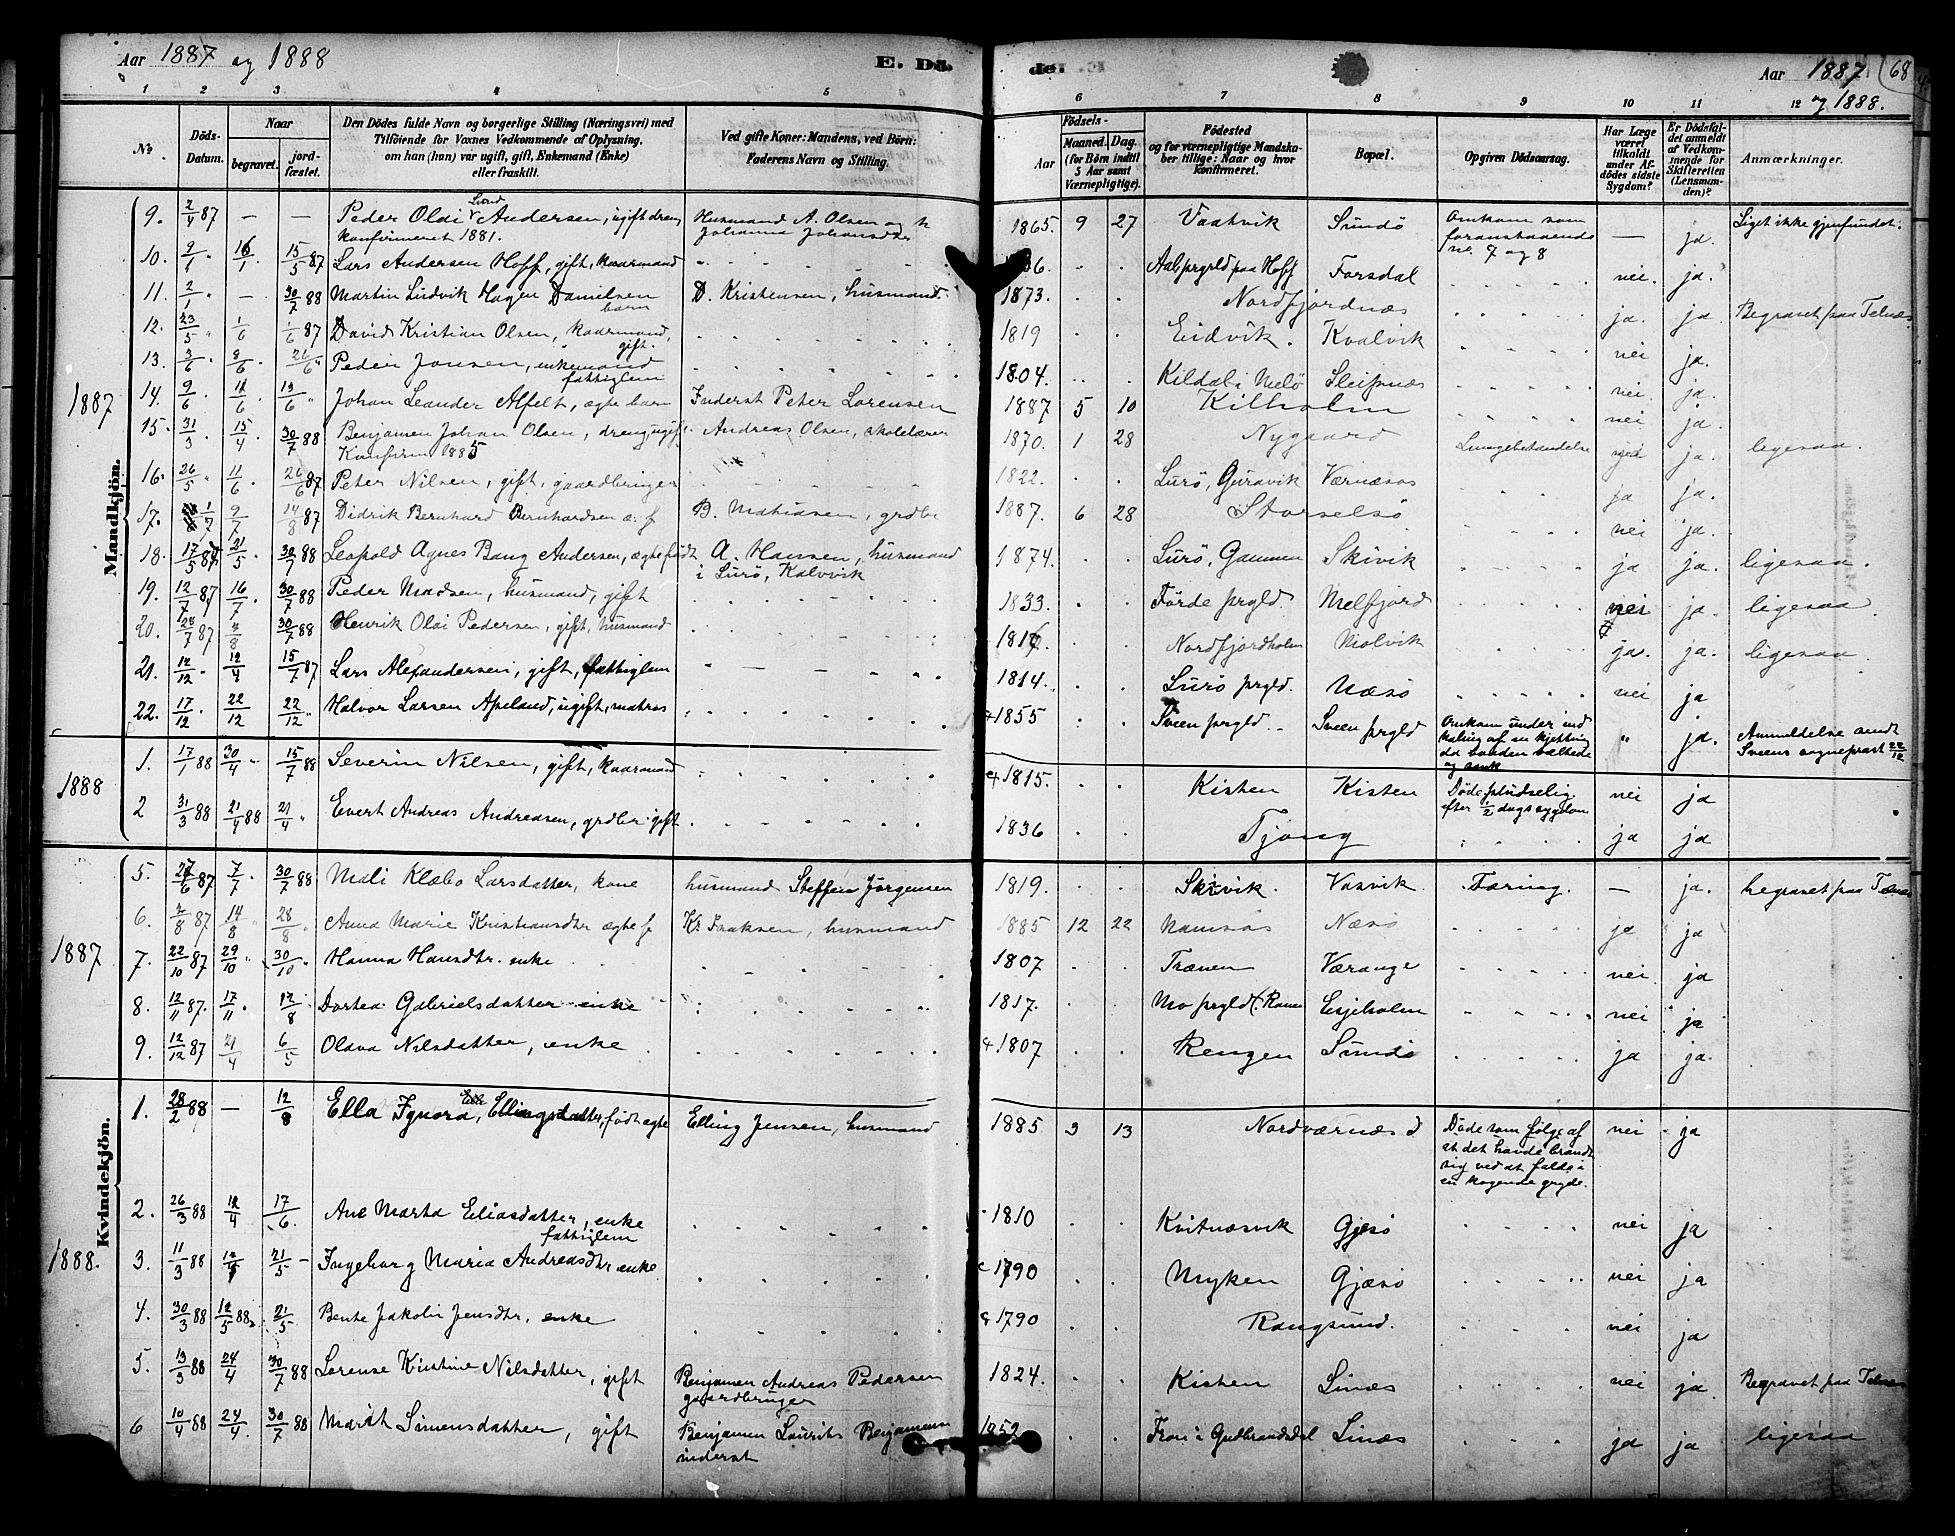 Aar 1887 og 1888 E. Dö- de. Aar 1887 68
og 1888.
1 2 3 4 5 6 7 8 9 10 11 12
No. Döds-Datum. Naar begravet. jord-fæstet. Den Dödes fulde Navn og borgerlige Stilling (Næringsvei) med Tilföiende for Voxnes Vedkommende af Oplysning, om han (hun) var ugift, gift, Enkemand (Enke) eller fraskilt. Ved gifte Koner: Mandens, ved Börn: Faderens Navn og Stilling. Födsels- Aar Maaned. Dag. (for Börn indtil 5 Aar samt Værnepligtige). Födested og for værnepligtige Mandskaber tillige: Naar og hvor konfirmeret. Bopæl. Opgiven Dödsaarsag. Har Læge været tilkaldt under Afdödes sidste Sygdom? Er Dödsfaldet anmeldt af Vedkommende for Skifteretten (Lensmanden)? Anmærkninger.
Mandkjön.
1887
9. 2/4 87 — — Peder Olai Andersen, ugift dreng Husmand A. Olsen og h 1865. 9 27 Vaatvik Sundö Omkom som — ja. Liget ikke gjenfundet.
konfirmeret 1881. Johanna Johansdtr foranstaaende
no. 7 og 8
10. 15/5 87 Lars Andersen Hoff, gift, kaarmand Aal prgld paa Hoff Forsdal nei ja.
11. 2/1 — 30/7 88 Martin Ludvik Hagen Danielsen D. Kristensen, husmand 1873. Nordfjordnæs ja. ja Begravet paa Telnæs
barn
12. 23/5 1/6 1/6 87 David Kristian Olsen, kaarmand, 1819 Eidvik. Kvalvik nei ja.
gift.
13. 3/6 8/6 26/6 Peder Jonsen, enkemand 1804. Kildal i Melö Sleipnæs nei. ja.
fattiglem
14. 9/6 12/6 Johan Leander Alfelt, ægte barn Inderst Peter Lorensen 1887 5 10 Kilholm nei ja.
15. 31/3 15/4 30/7 88 Benjamen Johan Olsen, dreng, ugift Andreas Olsen, skolelærer 1870. 1 28 Nygaard Lungebetændelse ja. ligesaa.
Konfirm 1885
16. 26/5 11/6 26/6 87 Peter Nilsen, gift, gaardbruger 1822. Lurö, Guravik Værnæsos ja ja.
17. 1/7 9/7 14/8 87 Didrik Bernhard Bernhardsen æ. f B. Mathiasen, grdbr 1887. 6 28 Storselsö nei ja.
18. 17/5 87 21/5 30/7 88 Leopold Agnes Bang Andersen, ægte født A. Hansen, husmand 1874. Lurö, Gammen Skivik ja ja. ligesaa.
i Lurö, Kalvvik
19. 12/7 87 16/7 30/7 88 Peder Madsen, husmand, gift 1833. Förde prgld. Melfjord nei ja. ligesaa
20. 28/7 87 30/7 88 Henrik Olai Pedersen, gift, husmand Nordfjordholm Molvik ja. ja. ligesaa.
21. 12/12 15/7 87 Lars Alexandersen, gift, fattiglem 1814. Lurö prgld. Næsö nei ja
22. 17/12 22/12 22/12 Halvor Larsen Apeland, ugift, matros 1855 Sveen prgld. Sveen prgld Omkom under ind ja. Anmeldelse sendt
haling af en kjetting Sveens sogneprest 22/12
da baaden vælted
og sank
1888
1. 17/1 88 30/4 15/7 88 Severin Nilsen, gift, kaarmand 1815. Kisten Kisten Döde pludselig nei ja
efter 1/2 dags sygdom
2 31/3 88 21/4 88 21/4 Evert Andreas Andreasen, grdbr. gift 1836 Tjong ja ja
Kvindekjön.
1887
5. 27/6 87 7/7 30/7 88 Mali Klæbo Larsdatter, kone husmand Steffen Jörgensen 1819. Skivik. Vasvik. Tæring. — ja. begravet paa Telnæs
6. 87 14/8 28/8 Anna Marie Kristiansdtr ægte f Kr Isaksen, husmand 1885 12 22 Namsos Næsö ja ja
7. 22/10 87 29/10 30/10 Hanna Hansdtr. enke 1807 Trænen Værange nei ja
8. 12/11 87. 17/11 Dortea Gabrielsdatter enke 1817. Mo prgld (Ranen Esjeholm nei ja
9. 12/12 87 21/4 6/5 Olava Nilsdatter, enke 1807 Rengen Sundö ja ja.
1888.
1. 28/2 88 — 12/8 Ella Ignora, Ellingsdatter, født ægte Elling Jensen, husmand 1885 3 13 Nordværnæs Döde som fölge af nei ja
at det havde brændt
sig ved at falde i
en kogende gryde.
2. 26/3 88 12/4 17/6. Ane Marta Eliasdatter, enke 1810 Kvitnæsvik Gjesö nei ja
fattiglem
3. 11/3 88 21/5 Ingeborg Maria Andreasdtr enke 1790 Myken Gjæsö nei ja
4. 30/3 88 12/5 88 21/5 Bente Jakobin Jensdtr, enke 1790 Rangsund. nei ja
5. 13/3 88 24/4 30/7 88 Lorense Kristine Nilsdatter, gift Benjamen Andreas Pedersen 1824. Kisten Sinæs nei ja. Begravet paa Telnæs
gaardbruger
6 10/4 88 24/4. 30/7 88 Marit Simensdatter, gift Benjamen Laurits Benjamens 1852 Fron i Gudbrandsdal Sinæs ja ja ligesaa
inderst